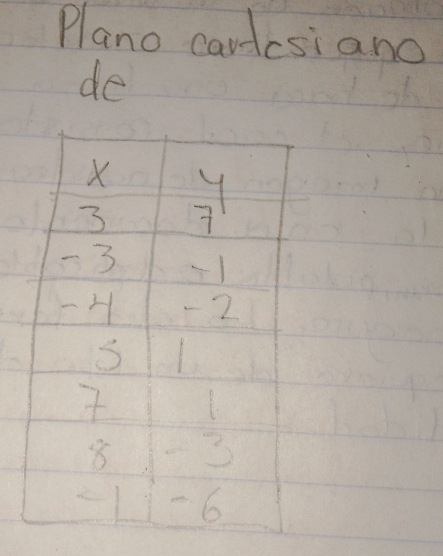 Plano cartesiano
de
x y
3 7
-3 -1
-4 -2
5 1
7 1
8 -3
-1 -6